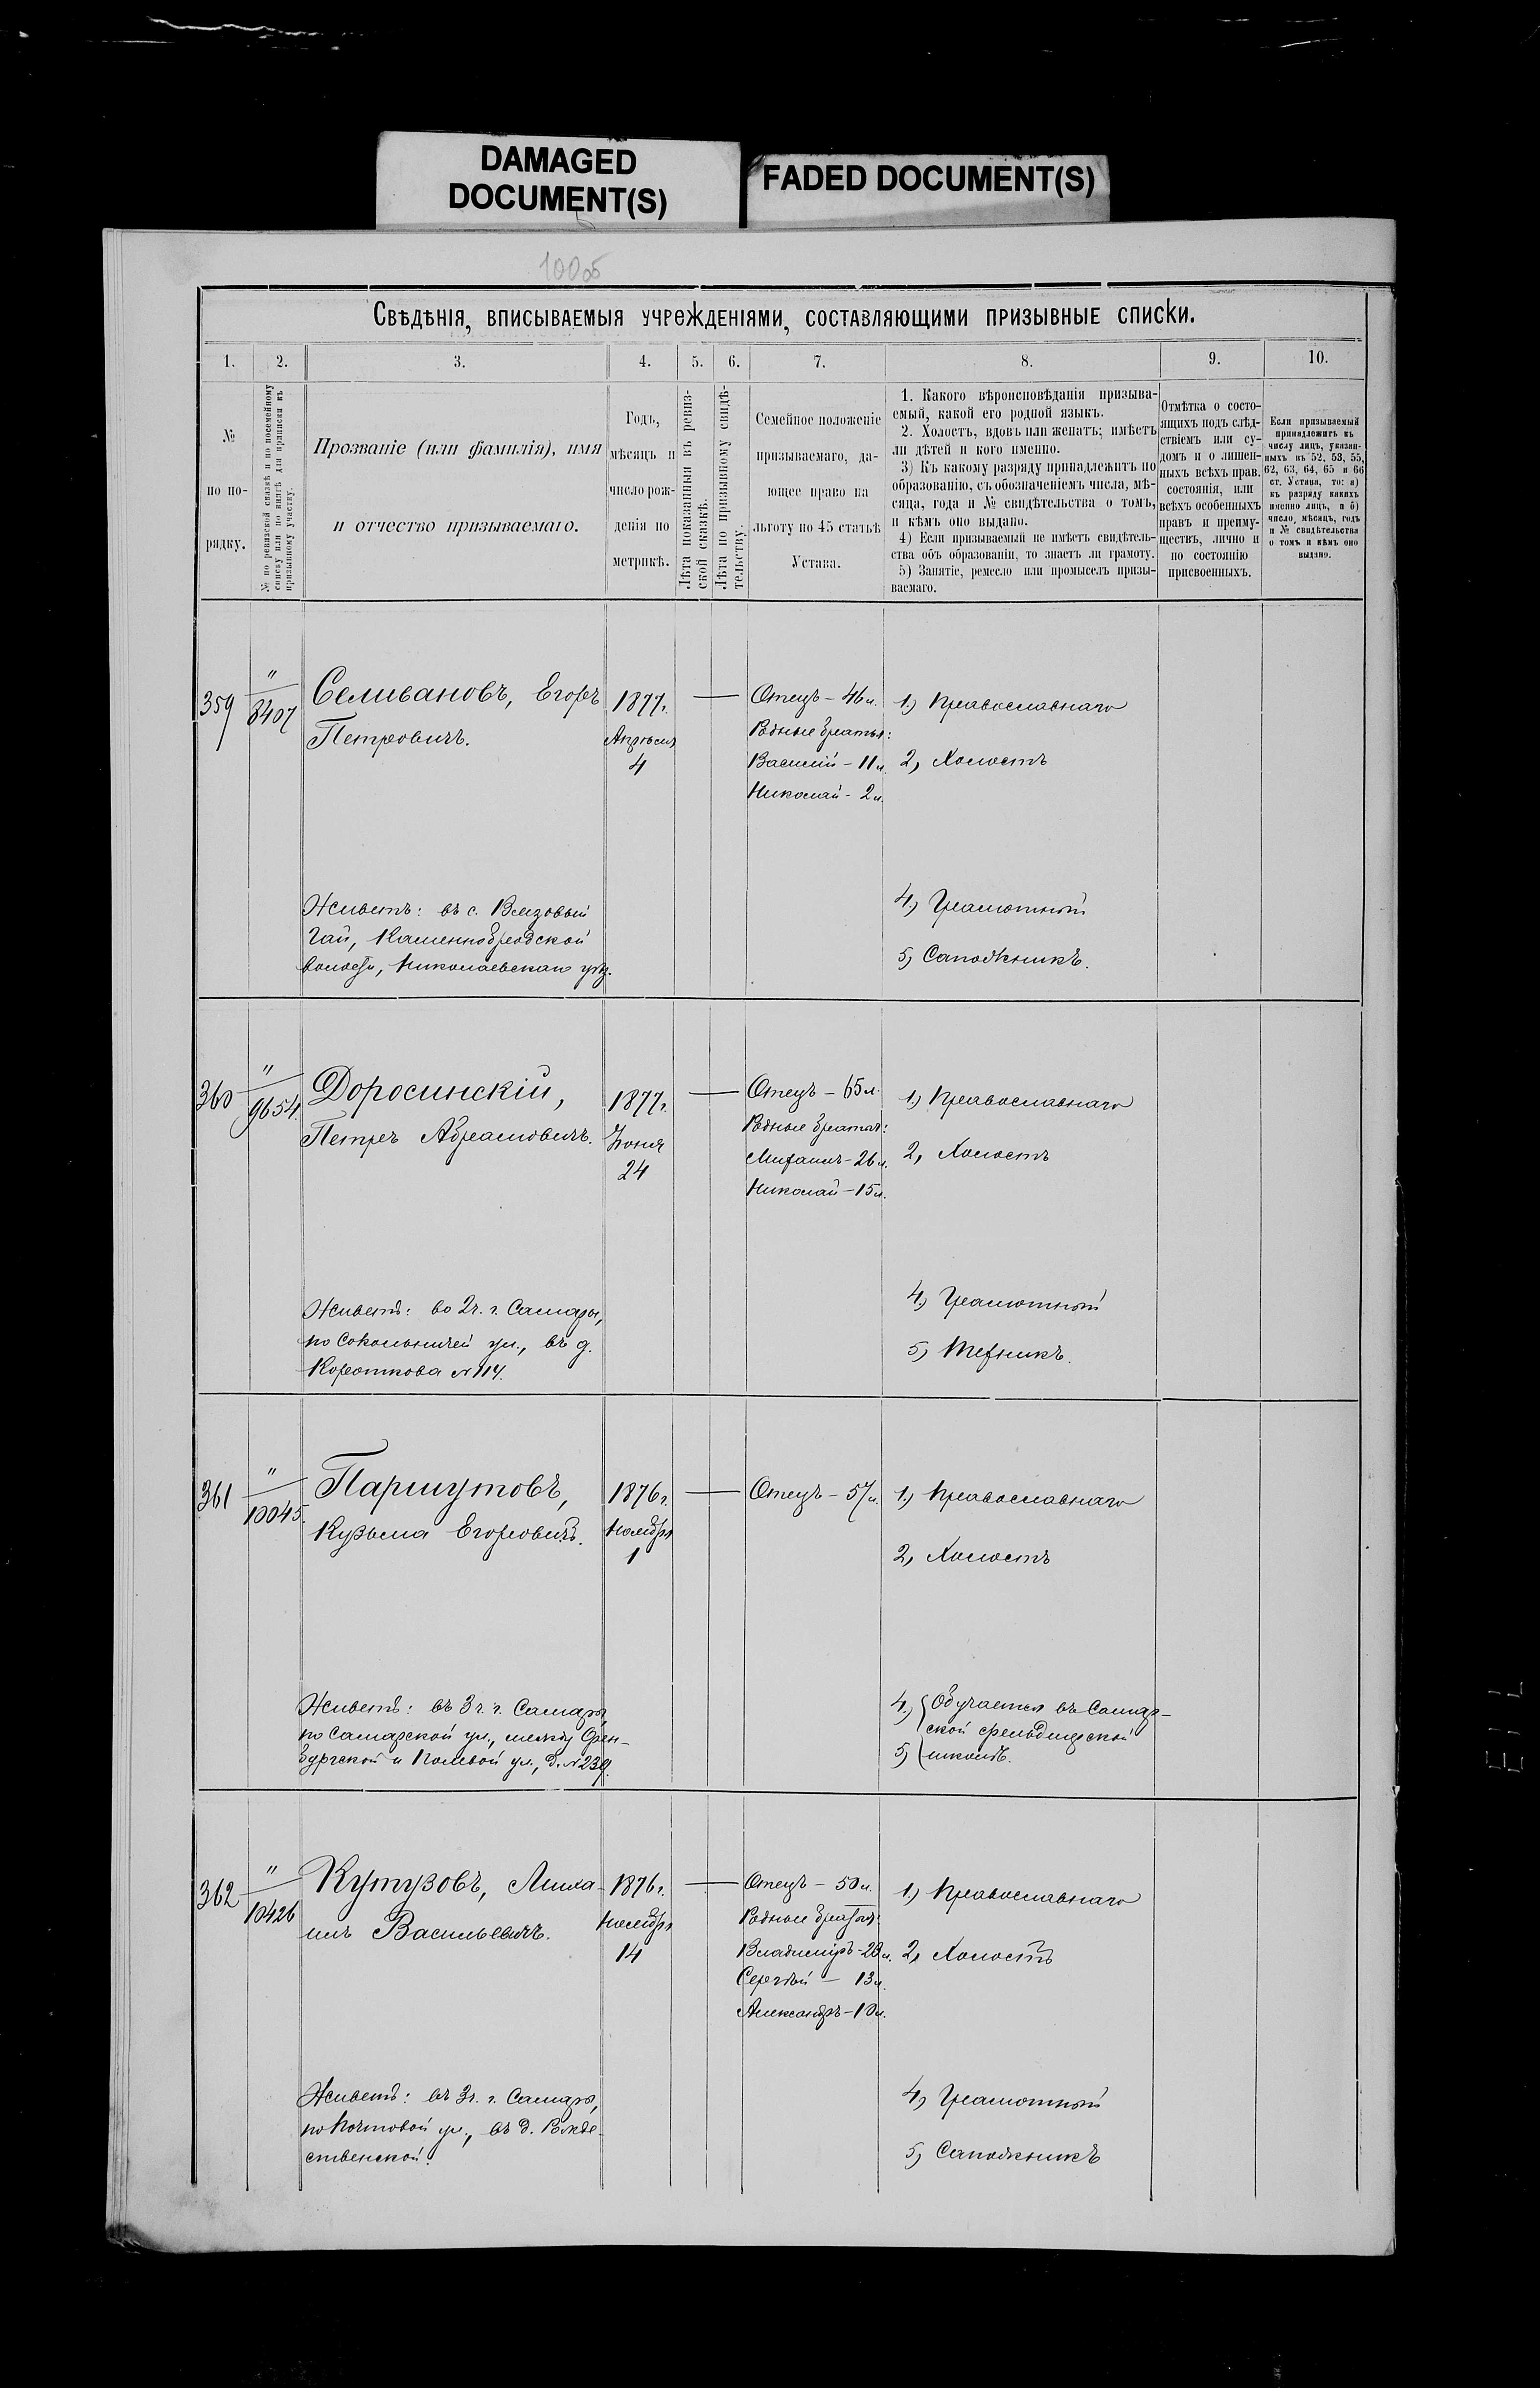 DAMAGED
DOCUMENT(S)
FADED DOCUMENT(S)
Свѣдѣнія, вписываемыя учрежденіями, составляющими призывные списки.
1. 2. 3. 4. 5. 6. 7. 8. 9. 10.
№
по по-
рядку.
№ по ревизской сказкѣ и по посемейному
списку или по книгѣ для приписки къ
призывному участку.
Прозваніе (или фамилія), имя
и отчество призываемаго.
Годъ,
мѣсяцъ и
число рож-
денія по
метрикѣ.
Лѣта показанныя въ ревиз-
ской сказкѣ.
Лѣта по призывному свидѣ-
тельству.
Семейное положеніе
призываемаго, да-
ющее право на
льготу по 45 статьѣ
Устава.
1. Какого вѣроисповѣданія призыва-
емый, какой его родной языкъ.
2. Холостъ, вдовъ или женатъ; имѣетъ
ли дѣтей и кого именно.
3) Къ какому разряду принадлежитъ по
образованію, съ обозначеніемъ числа, мѣ-
сяца, года и № свидѣтельства о томъ,
и кѣмъ оно выдано.
4) Если призываемый не имѣетъ свидѣтель-
ства объ образованіи, то знаетъ ли грамоту.
5) Занятіе, ремесло или промыселъ призы-
ваемаго.
Отмѣтка о состо-
ящихъ подъ слѣд-
ствіемъ или су-
домъ и о лишен-
ныхъ всѣхъ прав.
состоянія, или
всѣхъ особенныхъ
правъ и преиму-
ществъ, лично и
по состоянію
присвоенныхъ.
Если призываемый
принадлежитъ къ
числу лицъ, указан-
ныхъ въ 52, 53, 55,
62, 63, 64, 65 и 66
ст. Устава, то: а)
къ разряду какихъ
именно лицъ, и б)
число, мѣсяцъ, годъ
и № свидѣтельства
о томъ и кѣмъ оно
выдано.
359
"
8407
Селивановъ, Егоръ
Петровичъ.
1877г.
Апрѣля
4
Отецъ – 46 л.
Родные братья:
Василій – 11 л.
Николай - 2 л.
1.) Православнаго
2, Холостъ
Живетъ: въ с. Вязовый
Гай, Каменнобродской
волости, Николаевскаго уѣз.
4.) Грамотный
5, Сапожникъ.
360
"
9654.
Доросинскій,
Петръ Абрамовичъ.
1877г.
Іюня
24
Отецъ – 65 л.
Родные братья:
Михаилъ – 26 л.
Николай – 15 л.
1.) Православнаго
2, Холостъ
Живетъ: во 2 ч. г. Самары,
по Сокольничей ул., въ д.
Короткова № 114.
4.) Грамотный
5,
361
"
10045.
Паршутовъ,
Кузьма Егоровичъ.
1876г.
Ноября
1
Отецъ – 57 л.
1.) Православнаго
2, Холостъ
Живетъ: въ 3 ч. г. Самары,
по Самарской ул., между Орен-
бургской и Полевой ул., д. № 239.
4.) Обучается въ Самар-
ской фельдшерской
5) школѣ.
362
"
10426
Кутузовъ, Миха-
илъ Васильевичъ.
1876г.
Ноября
14
Отецъ – 50 л.
Родные братья:
Владиміръ - 23 л.
Сергѣй – 13 л.
Александръ – 10 л.
1.) Православнаго
2, Холостъ
Живетъ: въ 3 ч. г. Самары,
по Почтовой ул., въ д. Рожде-
ственской.
4, Грамотный
5, Сапожникъ